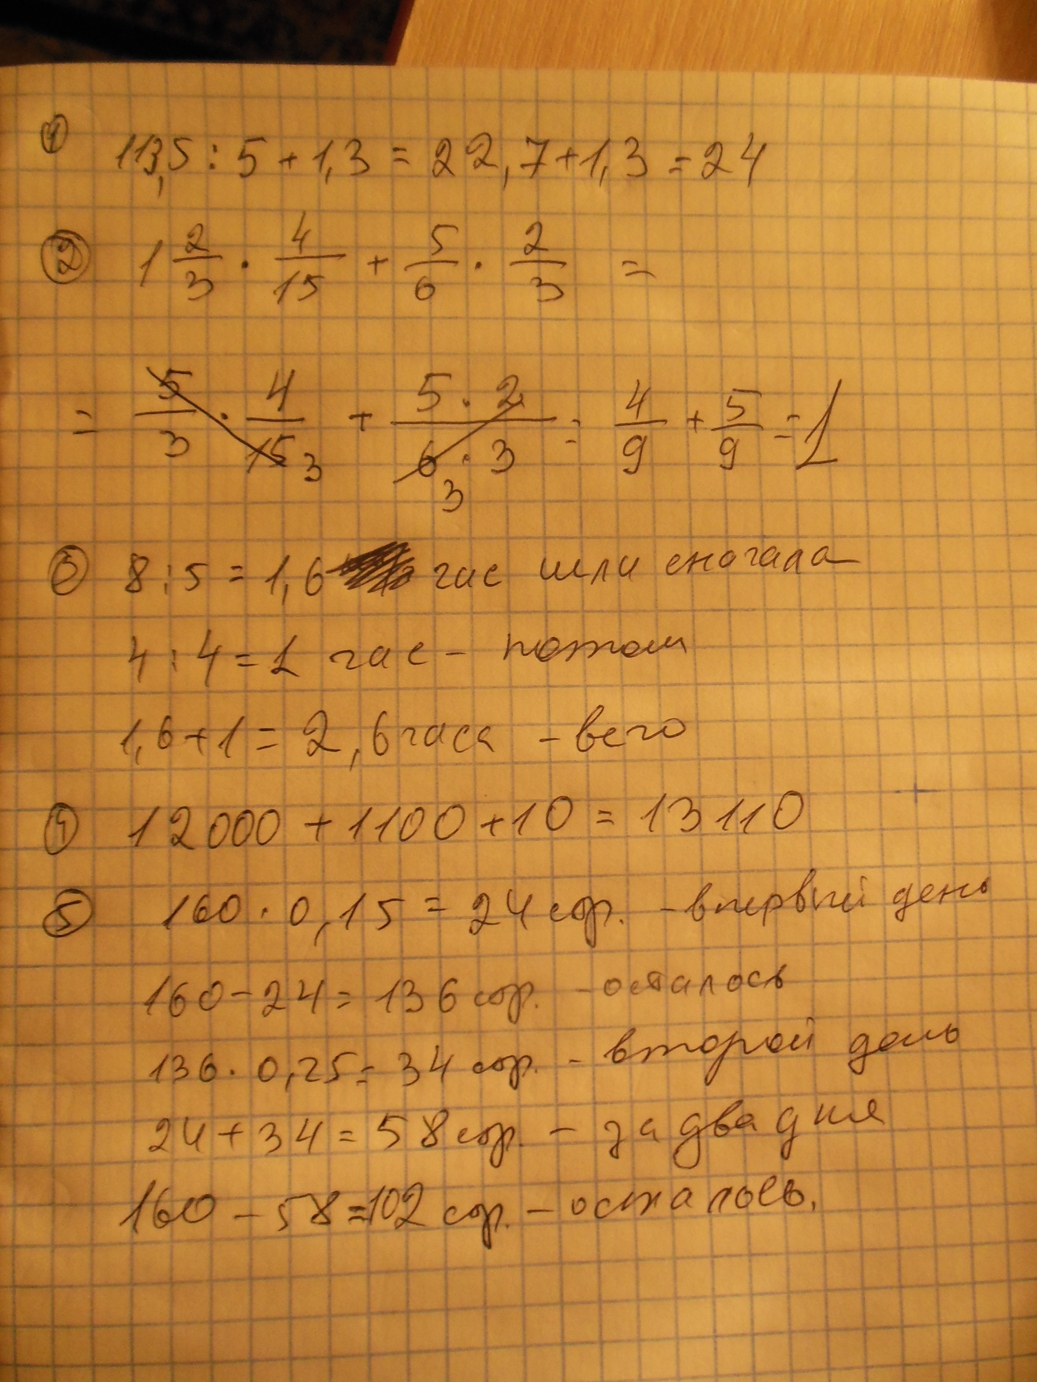 ① 113,5 : 5 + 1,3 = 22,7 + 1,3 = 24
② 1 2/3 · 4/15 + 5/6 · 2/3 =
= 5/3 · 4/15 3 + 5 · 2 / 6 · 3 3 = 4/9 + 5/9 = 1
③ 8 : 5 = 1,6 час шли сначала
4 : 4 = 1 час - потом
1,6 + 1 = 2,6 часа - вего
④ 12000 + 1100 + 10 = 13110
⑤ 160 · 0,15 = 24 сор. - впервый день
160 - 24 = 136 сор. - осталось
136 · 0,25 = 34 сор. - второй день
24 + 34 = 58 сор. - за два дня
160 - 58 = 102 сор. - осталось.